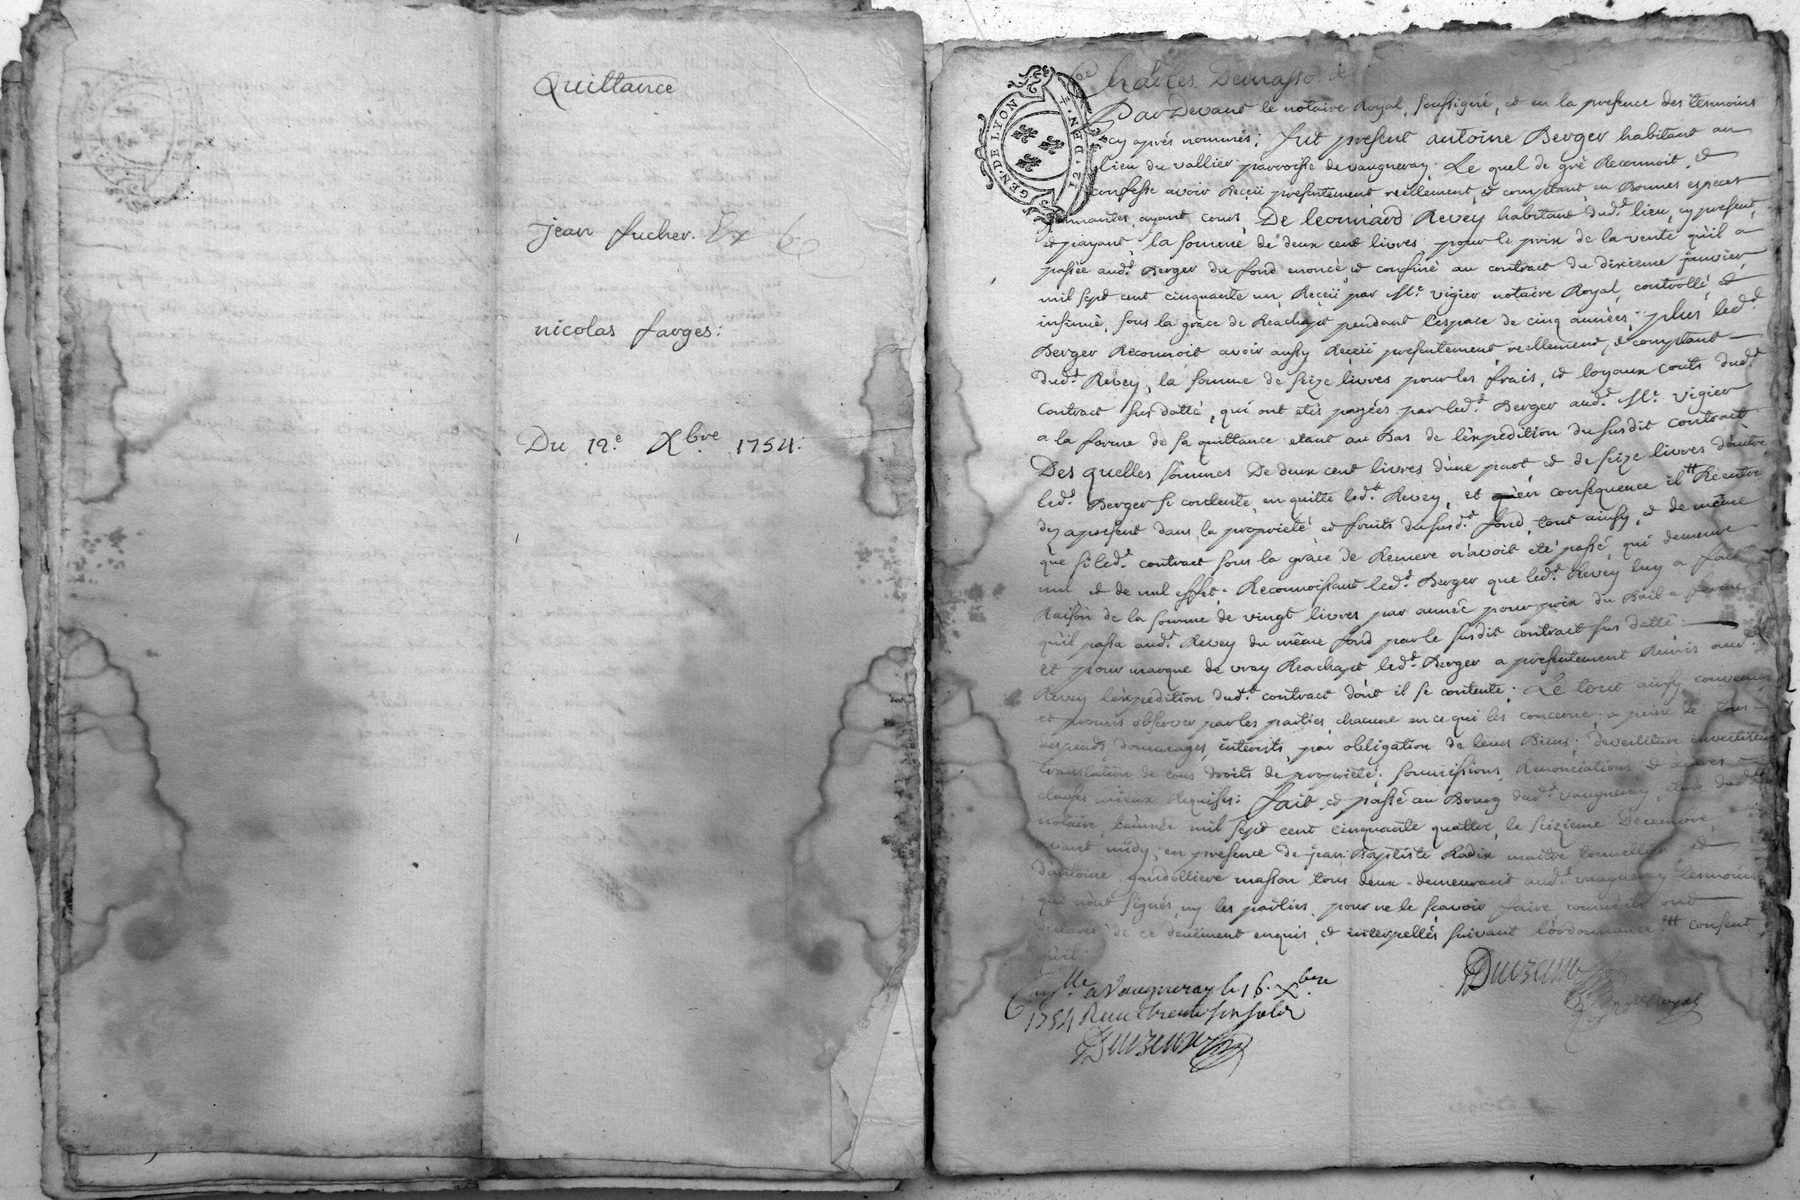 Quittance
jean fucher. Ex 6
nicolas farges:
Du 12.e Xbre 1754:
GEN. DE LYON
12. DEN.
Pardevant le notaire Royal, soussigné, et en la presence des temoins
cy aprés nommés; fut present antoine Berger habitant au
lieu du vallier parroisse de vaugneray; Le quel de gré Reconnoit, et
confesse avoir Receü presentement, reellement, et comptant en Bonnes especes
sonnantes, ayant cours De leonnard Revey habitant dud.t lieu, cy present,
et payant la somme de deux cent livres, pour le prix de la vente qu'il a
passée aud.t Berger du fond enoncé et confiné au contract du dixieme janvier
mil sept cent cinquante un Receü par Me. vigier notaire Royal, controllé, et
insinué, sous la grace de Reachapt pendant l'espace de cinq années; plus led.t
Berger Reconnoit avoir aussy Receü presentement, reellement, et comptant
dud.t Revey, la somme de seize livres pour les frais, et loyaux couts dud.t
contract sus datté, qui ont etés payées par led.t Berger aud.t Me. vigier
a la forme de sa quittance etant au Bas de l'expedition du susdit contract
Des quelles sommes De deux cent livres d'une part et de seize livres d'autre,
led.t Berger se contente, en quitte led.t Revey, et en consequence il Rëentre
dez apresent dans la proprieté et fruits du susd.t fond, tout ainsy, et de même
que si led.t contract sous la grace de Remere n'avoit eté passé, qui demeure
nul et de nul effet; Reconnoissant led.t Berger que led.t Revey luy a fait
Raison de la somme de vingt livres par année pour prix du Bail a ferme
qu'il passa aud.t Revey du même fond par le susdit contract sus datté;
et pour marque de vray Reachapt led.t Berger a presentement Remis aud.t
Revey l'expedition dud.t contract dont il se contente; Le tout ainsy convenu
et promis observer par les parties chacune en ce qui les concerne, a peine de tous
despends, dommages, interests, par obligation de leurs Biens; devestiture investiture
translation de tous droits de proprieté, soumissions, Renonciations et autres
clauses mieux Requises; fait et passé au Bourg dud.t vaugneray, etude dud.t
notaire, l'année mil sept cent cinquante quattre, le seizieme Decembre
avant midy; en presence de jean Baptiste Radix maitre tonnellier, et
d'antoine gandolliere masson tous deux demeurant aud.t vaugneray temoins
qui n'ont signés, ny les parties, pour ne le scavoir faire comme ils ont
declaré de ce deüement enquis, et interpellés suivant l'ordonnance consent
qu'il
a Vaugneray le 16. Xbre
1754 Receu treize sols